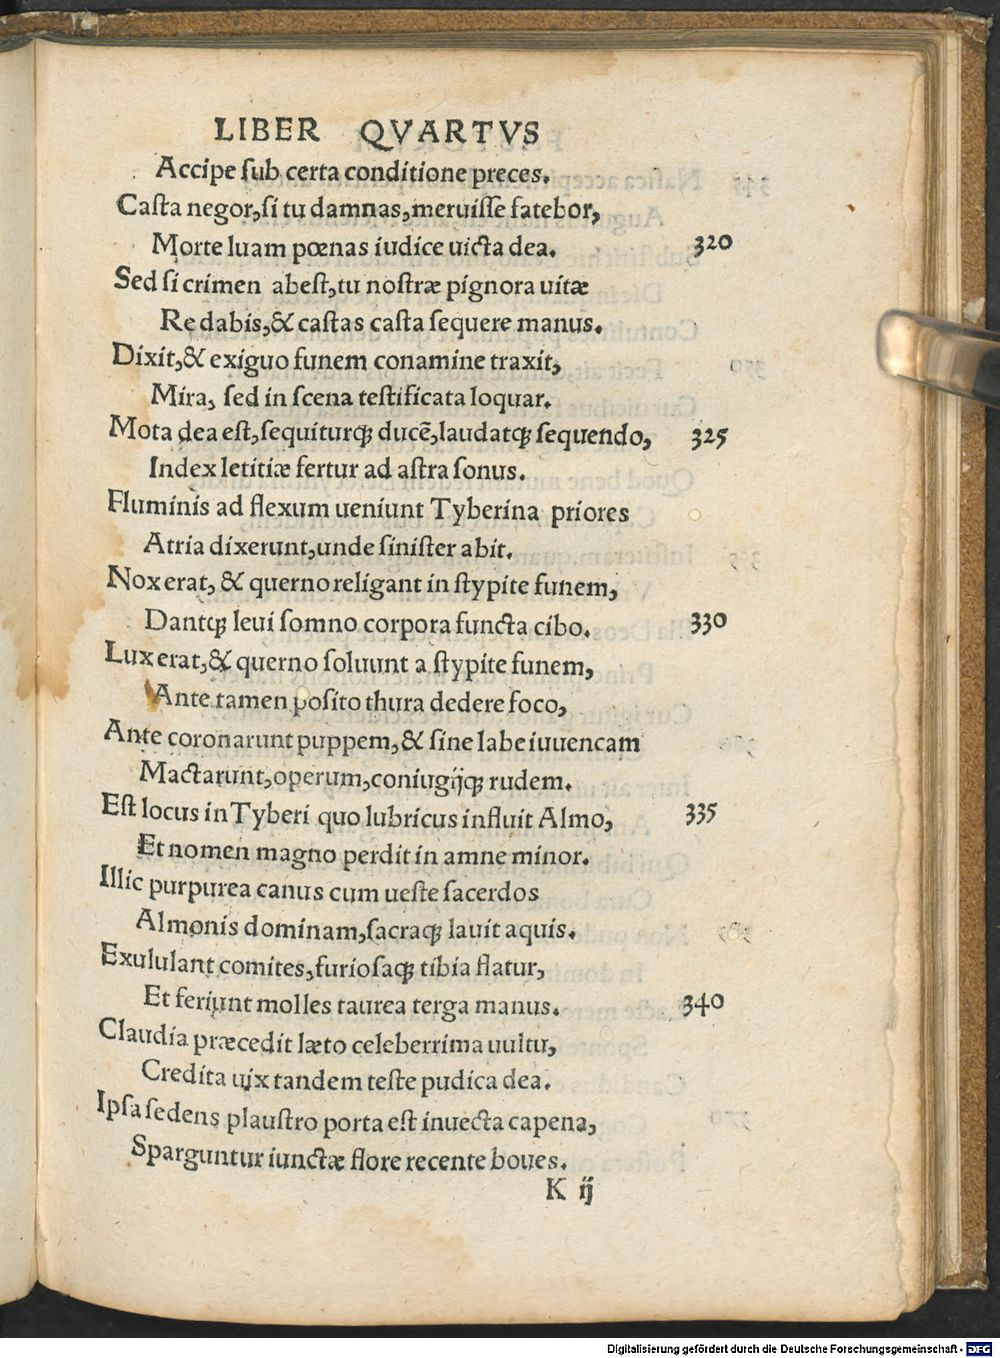 LIBER QVARTVS
Accipe ſub certa conditione preces.
Caſta negor,ſi tu damnas,meruiſſe fatebor,
Morte luam pœnas iudice uicta dea. 320
Sed ſi crimen abeſt,tu noſtræ pignora uitæ
Re dabis,& caſtas caſta ſequere manus.
Dixit,& exiguo funem conamine traxit,
Mira, ſed in ſcena teſtificata loquar.
Mota dea eſt,ſequiturq; ducẽ,laudatq; ſequendo, 325
Index letitiæ fertur ad aſtra ſonus.
Fluminis ad flexum ueniunt Tyberina priores
Atria dixerunt,unde ſiniſter abit.
Nox erat, & querno religant in ſtypite funem,
Dantq; leui ſomno corpora functa cibo. 330
Lux erat,& querno ſoluunt a ſtypite funem,
Ante tamen poſito thura dedere foco,
Ante coronarunt puppem,& ſine labe iuuencam
Mactarunt,operum,coniugijq; rudem.
Eſt locus in Tyberi quo lubricus influit Almo, 335
Et nomen magno perdit in amne minor.
Illic purpurea canus cum ueſte ſacerdos
Almonis dominam,ſacraq; lauit aquis.
Exululant comites,furioſaq; tibia flatur,
Et feriunt molles taurea terga manus. 340
Claudia præcedit læto celeberrima uultu,
Credita uix tandem teſte pudica dea.
Ipſa ſedens plauſtro porta eſt inuecta capena,
Sparguntur iunctæ flore recente boues.
K ij
Digitalisierung gefördert durch die Deutsche Forschungsgemeinschaft - DFG